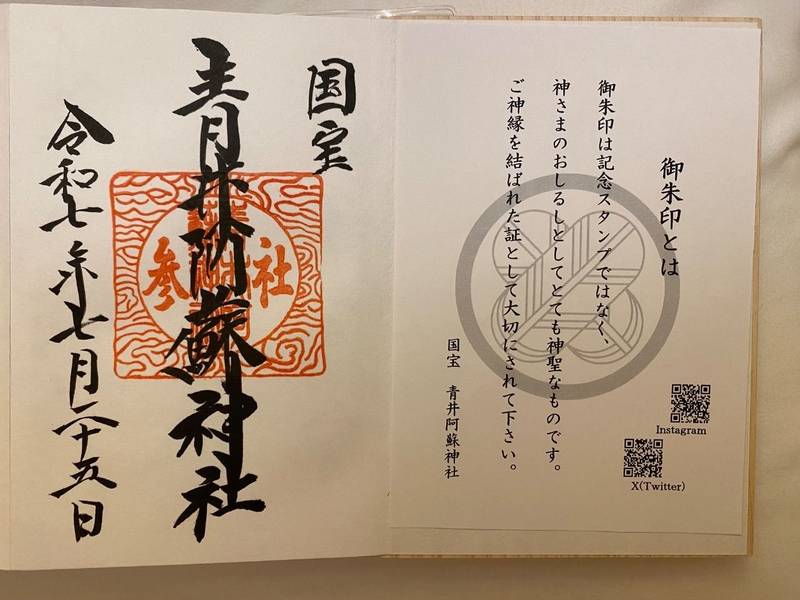 御朱印とは
御朱印は記念スタンプではなく、
神さまのおしるしとしてとても神聖なものです。
ご神縁を結ばれた証として大切にされて下さい。
国宝 青井阿蘇神社
Instagram
X(Twitter)
国宝
青井阿蘇神社
参社
令和七年七月二十五日